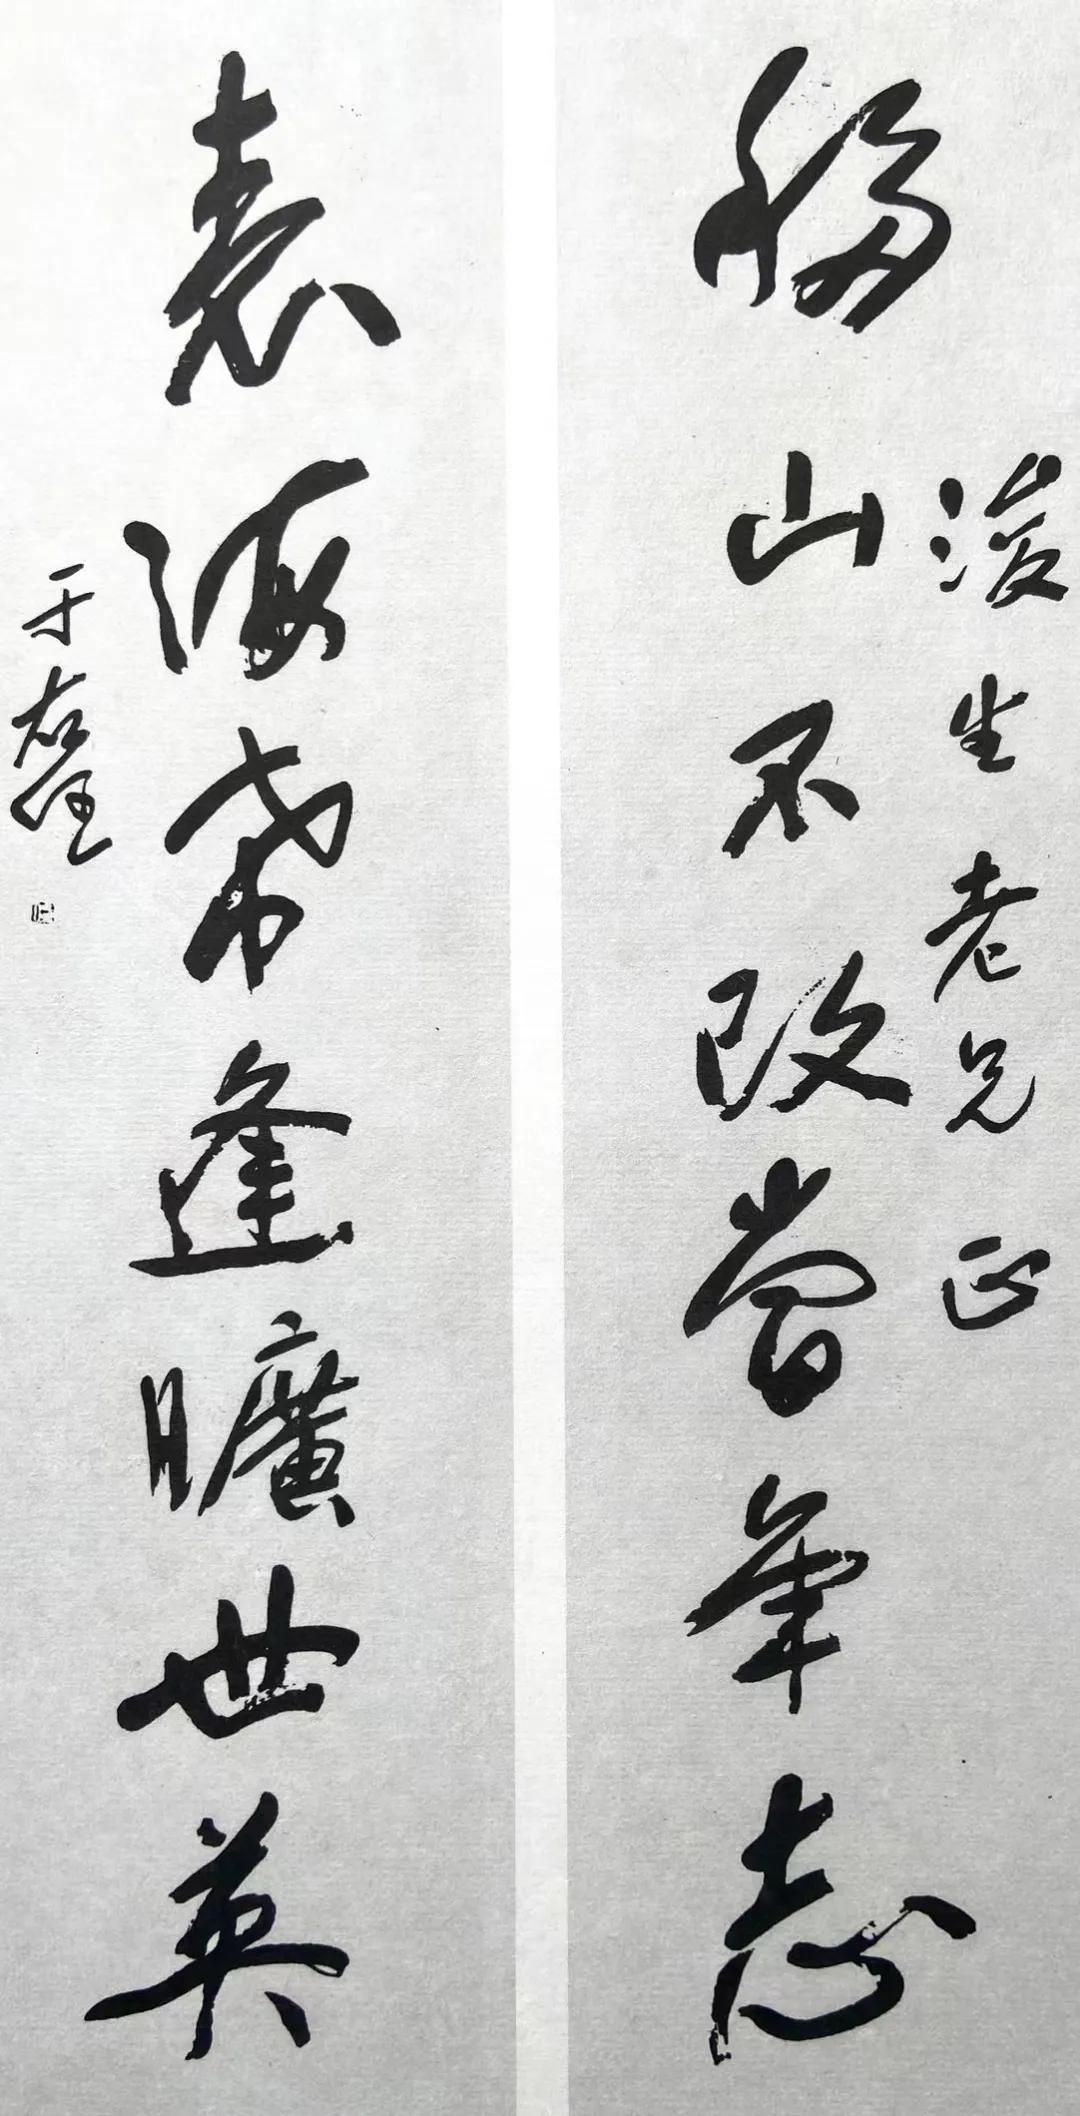 浚生老兄正
移山不改當年志
表海希逢曠世英
于右任